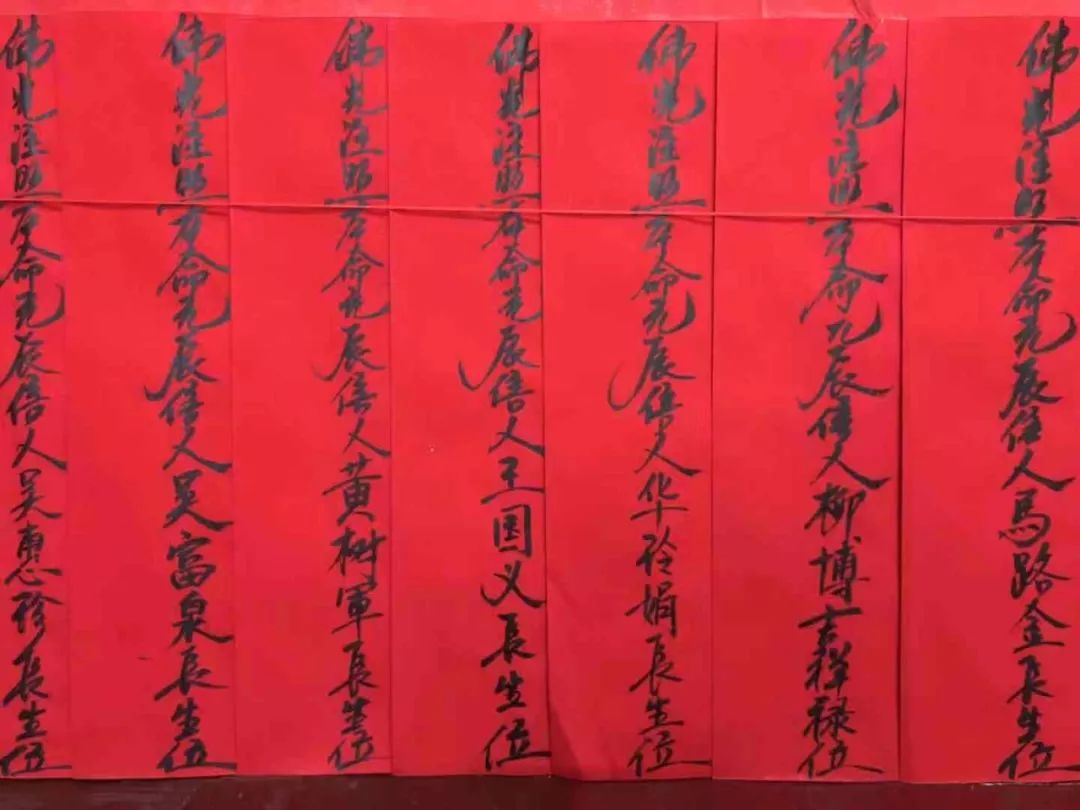 佛光注照本命元辰信人馬路金長生位
佛光注照本命元辰信人柳博言祥禄位
佛光注照本命元辰信人华玲娟長生位
佛光注照本命元辰信人王国义長生位
佛光注照本命元辰信人黄树軍長生位
佛光注照本命元辰信人吴富泉長生位
佛光注照本命元辰信人吴惠珍長生位